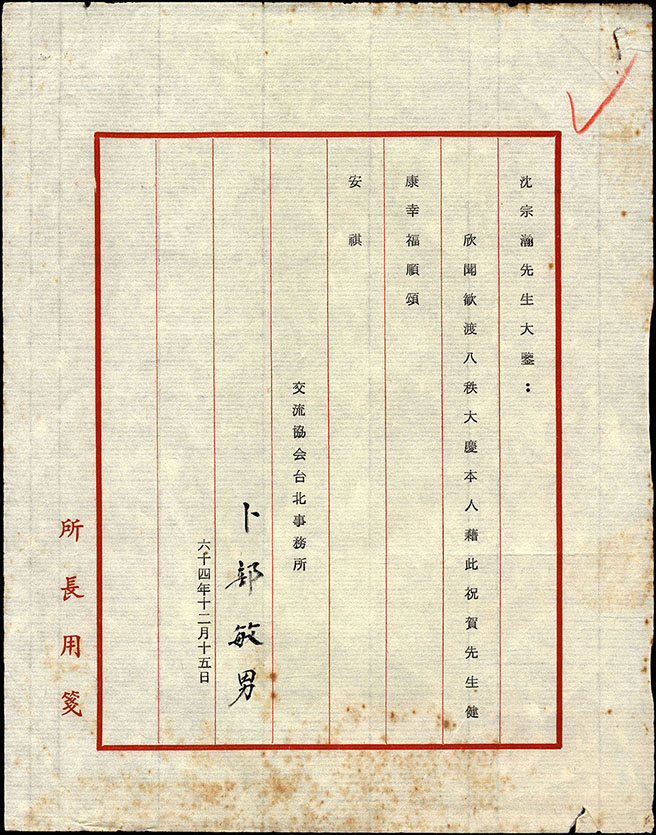 沈宗瀚先生大鑒：
欣聞歡渡八秩大慶本人藉此祝賀先生健
康幸福順頌
安祺
交流協会台北事務所
卜部敏男
六十四年十二月十五日
所長用箋